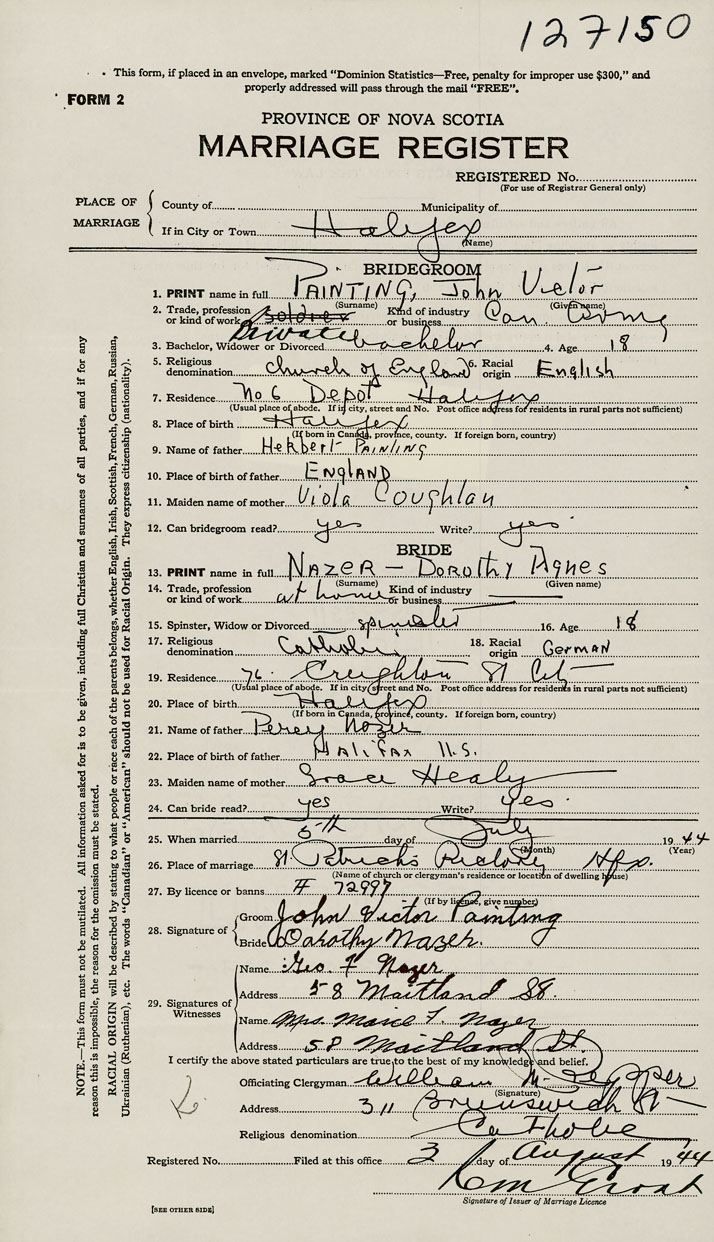 127150
This form, if placed in an envelope, marked "Dominion Statistics—Free, penalty for improper use $300," and
properly addressed will pass through the mail "FREE".
FORM 2
PROVINCE OF NOVA SCOTIA
MARRIAGE REGISTER
REGISTERED No.
(For use of Registrar General only)
PLACE OF MARRIAGE
County of Municipality of
If in City or Town Halifax
(Name)
BRIDEGROOM
1. PRINT name in full PAINTING, John Victor
(Surname) (Given name)
2. Trade, profession or kind of work soldier Private Kind of industry or business Can. Army
3. Bachelor, Widower or Divorced bachelor 4. Age 18
5. Religious denomination Church of England 6. Racial origin English
7. Residence No 6 Depot Halifax
(Usual place of abode. If in city, street and No. Post office address for residents in rural parts not sufficient)
8. Place of birth Halifax
(If born in Canada, province, county. If foreign born, country)
9. Name of father Herbert PAINTING
10. Place of birth of father ENGLAND
11. Maiden name of mother Viola Coughlan
12. Can bridegroom read? yes Write? yes
BRIDE
13. PRINT name in full NAZER — DOROTHY Agnes
(Surname) (Given name)
14. Trade, profession or kind of work at home Kind of industry or business
15. Spinster, Widow or Divorced spinster 16. Age 18
17. Religious denomination Catholic 18. Racial origin GERMAN
19. Residence 76 Creighton St City
(Usual place of abode. If in city street and No. Post office address for residents in rural parts not sufficient)
20. Place of birth Halifax
(If born in Canada, province, county. If foreign born, country)
21. Name of father Percy Nazer
22. Place of birth of father HALIFAX N.S.
23. Maiden name of mother Grace Healy
24. Can bride read? yes Write? yes
25. When married 5th day of July 1944
(Month) (Year)
26. Place of marriage St. Patricks Rectory Hfx.
(Name of church or clergyman's residence or location of dwelling house)
27. By licence or banns # 72997
(If by license, give number)
28. Signature of
Groom John Victor Painting
Bride Dorothy Nazer.
29. Signatures of Witnesses
Name Geo. F Nazer
Address 58 Maitland St.
Name Mrs. F. Nazer
Address 58 Maitland St.
I certify the above stated particulars are true to the best of my knowledge and belief.
Officiating Clergyman William
(Signature)
Address 311 Brunswick St
Religious denomination Catholic
Registered No. Filed at this office 3 day of August 1944
Signature of Issuer of Marriage Licence
[SEE OTHER SIDE]
NOTE.—This form must not be mutilated. All information asked for is to be given, including full Christian and surnames of all parties, and if for any
reason this is impossible, the reason for the omission must be stated.
RACIAL ORIGIN will be described by stating to what people or race each of the parents belongs, whether English, Irish, Scottish, French, German, Russian,
Ukrainian (Ruthenian), etc. The words "Canadian" or "American" should not be used for Racial Origin. They express citizenship (nationality).